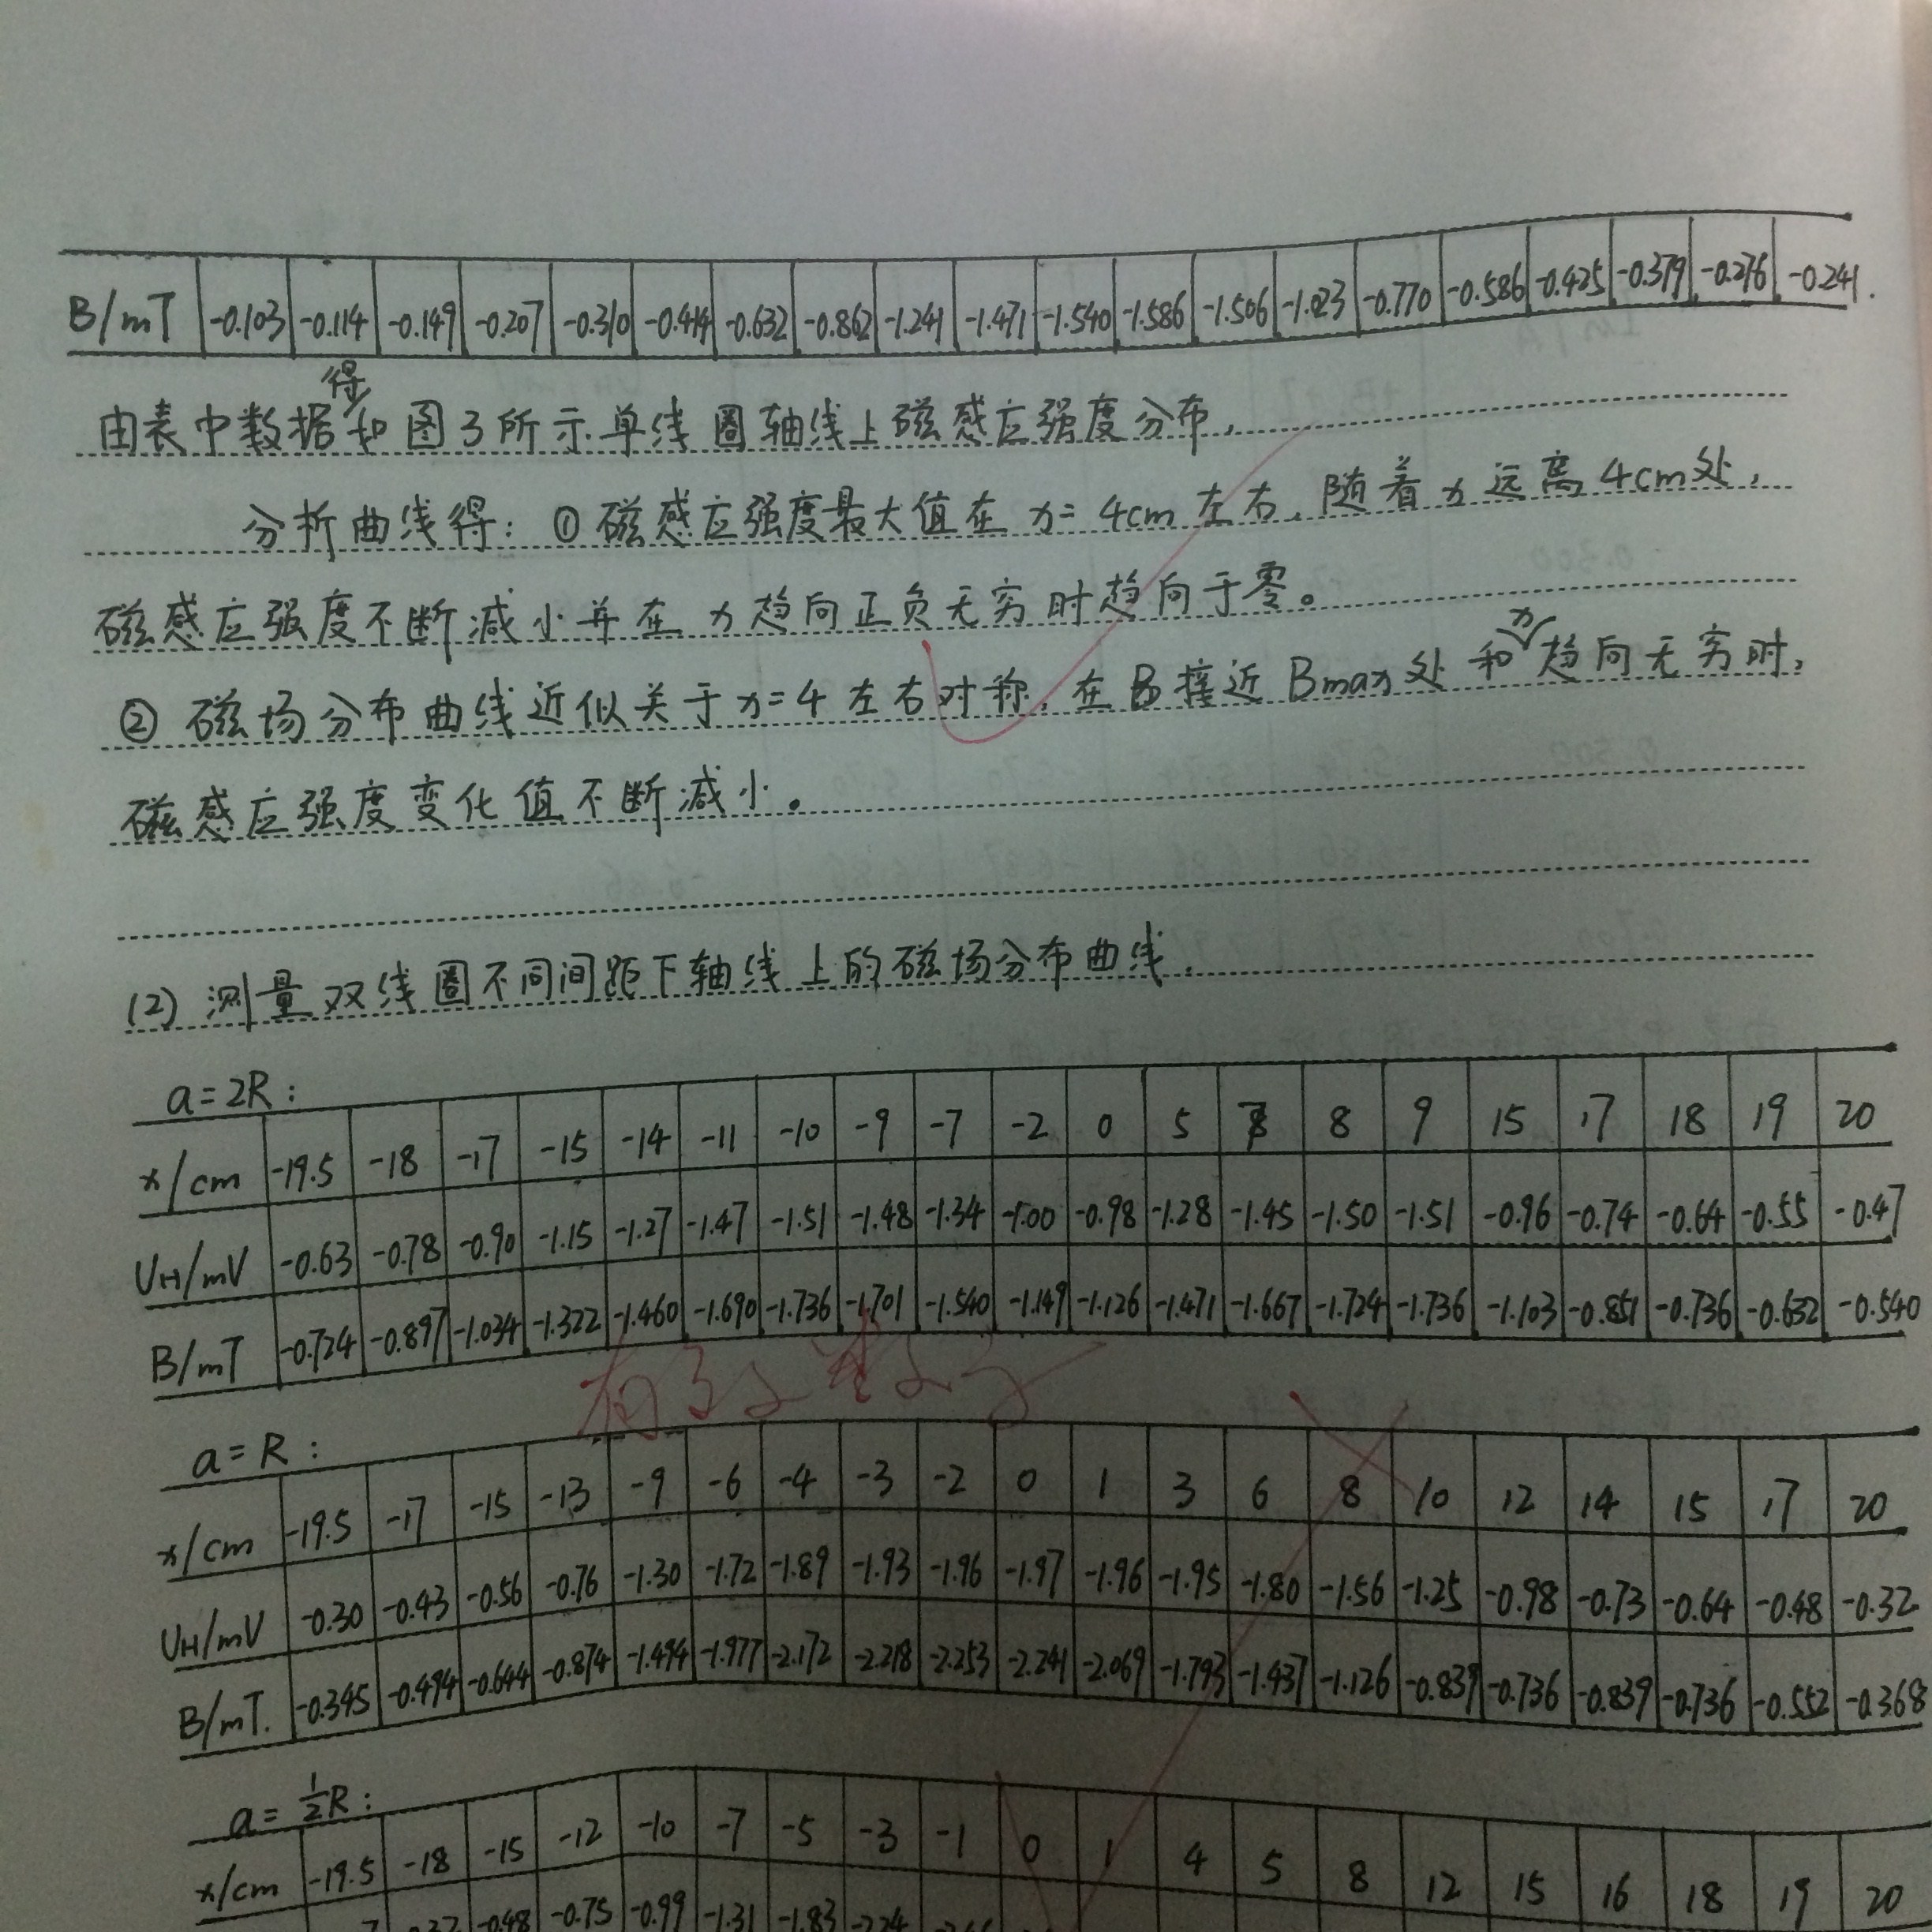 B/mT -0.103 -0.114 -0.149 -0.207 -0.310 -0.414 -0.632 -0.862 -1.241 -1.471 -1.540 -1.586 -1.506 -1.023 -0.770 -0.586 -0.425 -0.379 -0.276 -0.241.
由表中数据得如图3所示单线圈轴线上磁感应强度分布,
分析曲线得: ①磁感应强度最大值在 x= 4cm 左右,随着 x 远离 4cm处,
磁感应强度不断减小并在 x 趋向正负无穷时趋向于零。
② 磁场分布曲线近似关于 x=4 左右对称,在B接近Bmax处和x趋向无穷时,
磁感应强度变化值不断减小。
(2) 测量双线圈不同间距下轴线上的磁场分布曲线.
a=2R:
x/cm -19.5 -18 -17 -15 -14 -11 -10 -9 -7 -2 0 5 8 9 15 17 18 19 20
UH/mV -0.63 -0.78 -0.90 -1.15 -1.27 -1.47 -1.51 -1.48 -1.34 -1.00 -0.98 -1.28 -1.45 -1.50 -1.51 -0.96 -0.74 -0.64 -0.55 -0.47
B/mT -0.724 -0.897 -1.034 -1.322 -1.460 -1.690 -1.736 -1.701 -1.540 -1.149 -1.126 -1.471 -1.667 -1.724 -1.736 -1.103 -0.851 -0.736 -0.632 -0.540
a=R:
x/cm -19.5 -17 -15 -13 -9 -6 -4 -3 -2 0 1 3 6 8 10 12 14 15 17 20
UH/mV -0.30 -0.43 -0.56 -0.76 -1.30 -1.72 -1.89 -1.93 -1.96 -1.97 -1.96 -1.95 -1.80 -1.56 -1.25 -0.98 -0.73 -0.64 -0.48 -0.32
B/mT. -0.345 -0.494 -0.644 -0.874 -1.494 -1.977 -2.172 -2.218 -2.253 -2.241 -2.069 -1.793 -1.437 -1.126 -0.839 -0.736 -0.839 -0.736 -0.552 -0.368
a=½R:
x/cm -19.5 -18 -15 -12 -10 -7 -5 -3 -1 0 1 4 5 8 12 15 16 18 19 20
-0.48 -0.75 -0.99 -1.31 -1.83